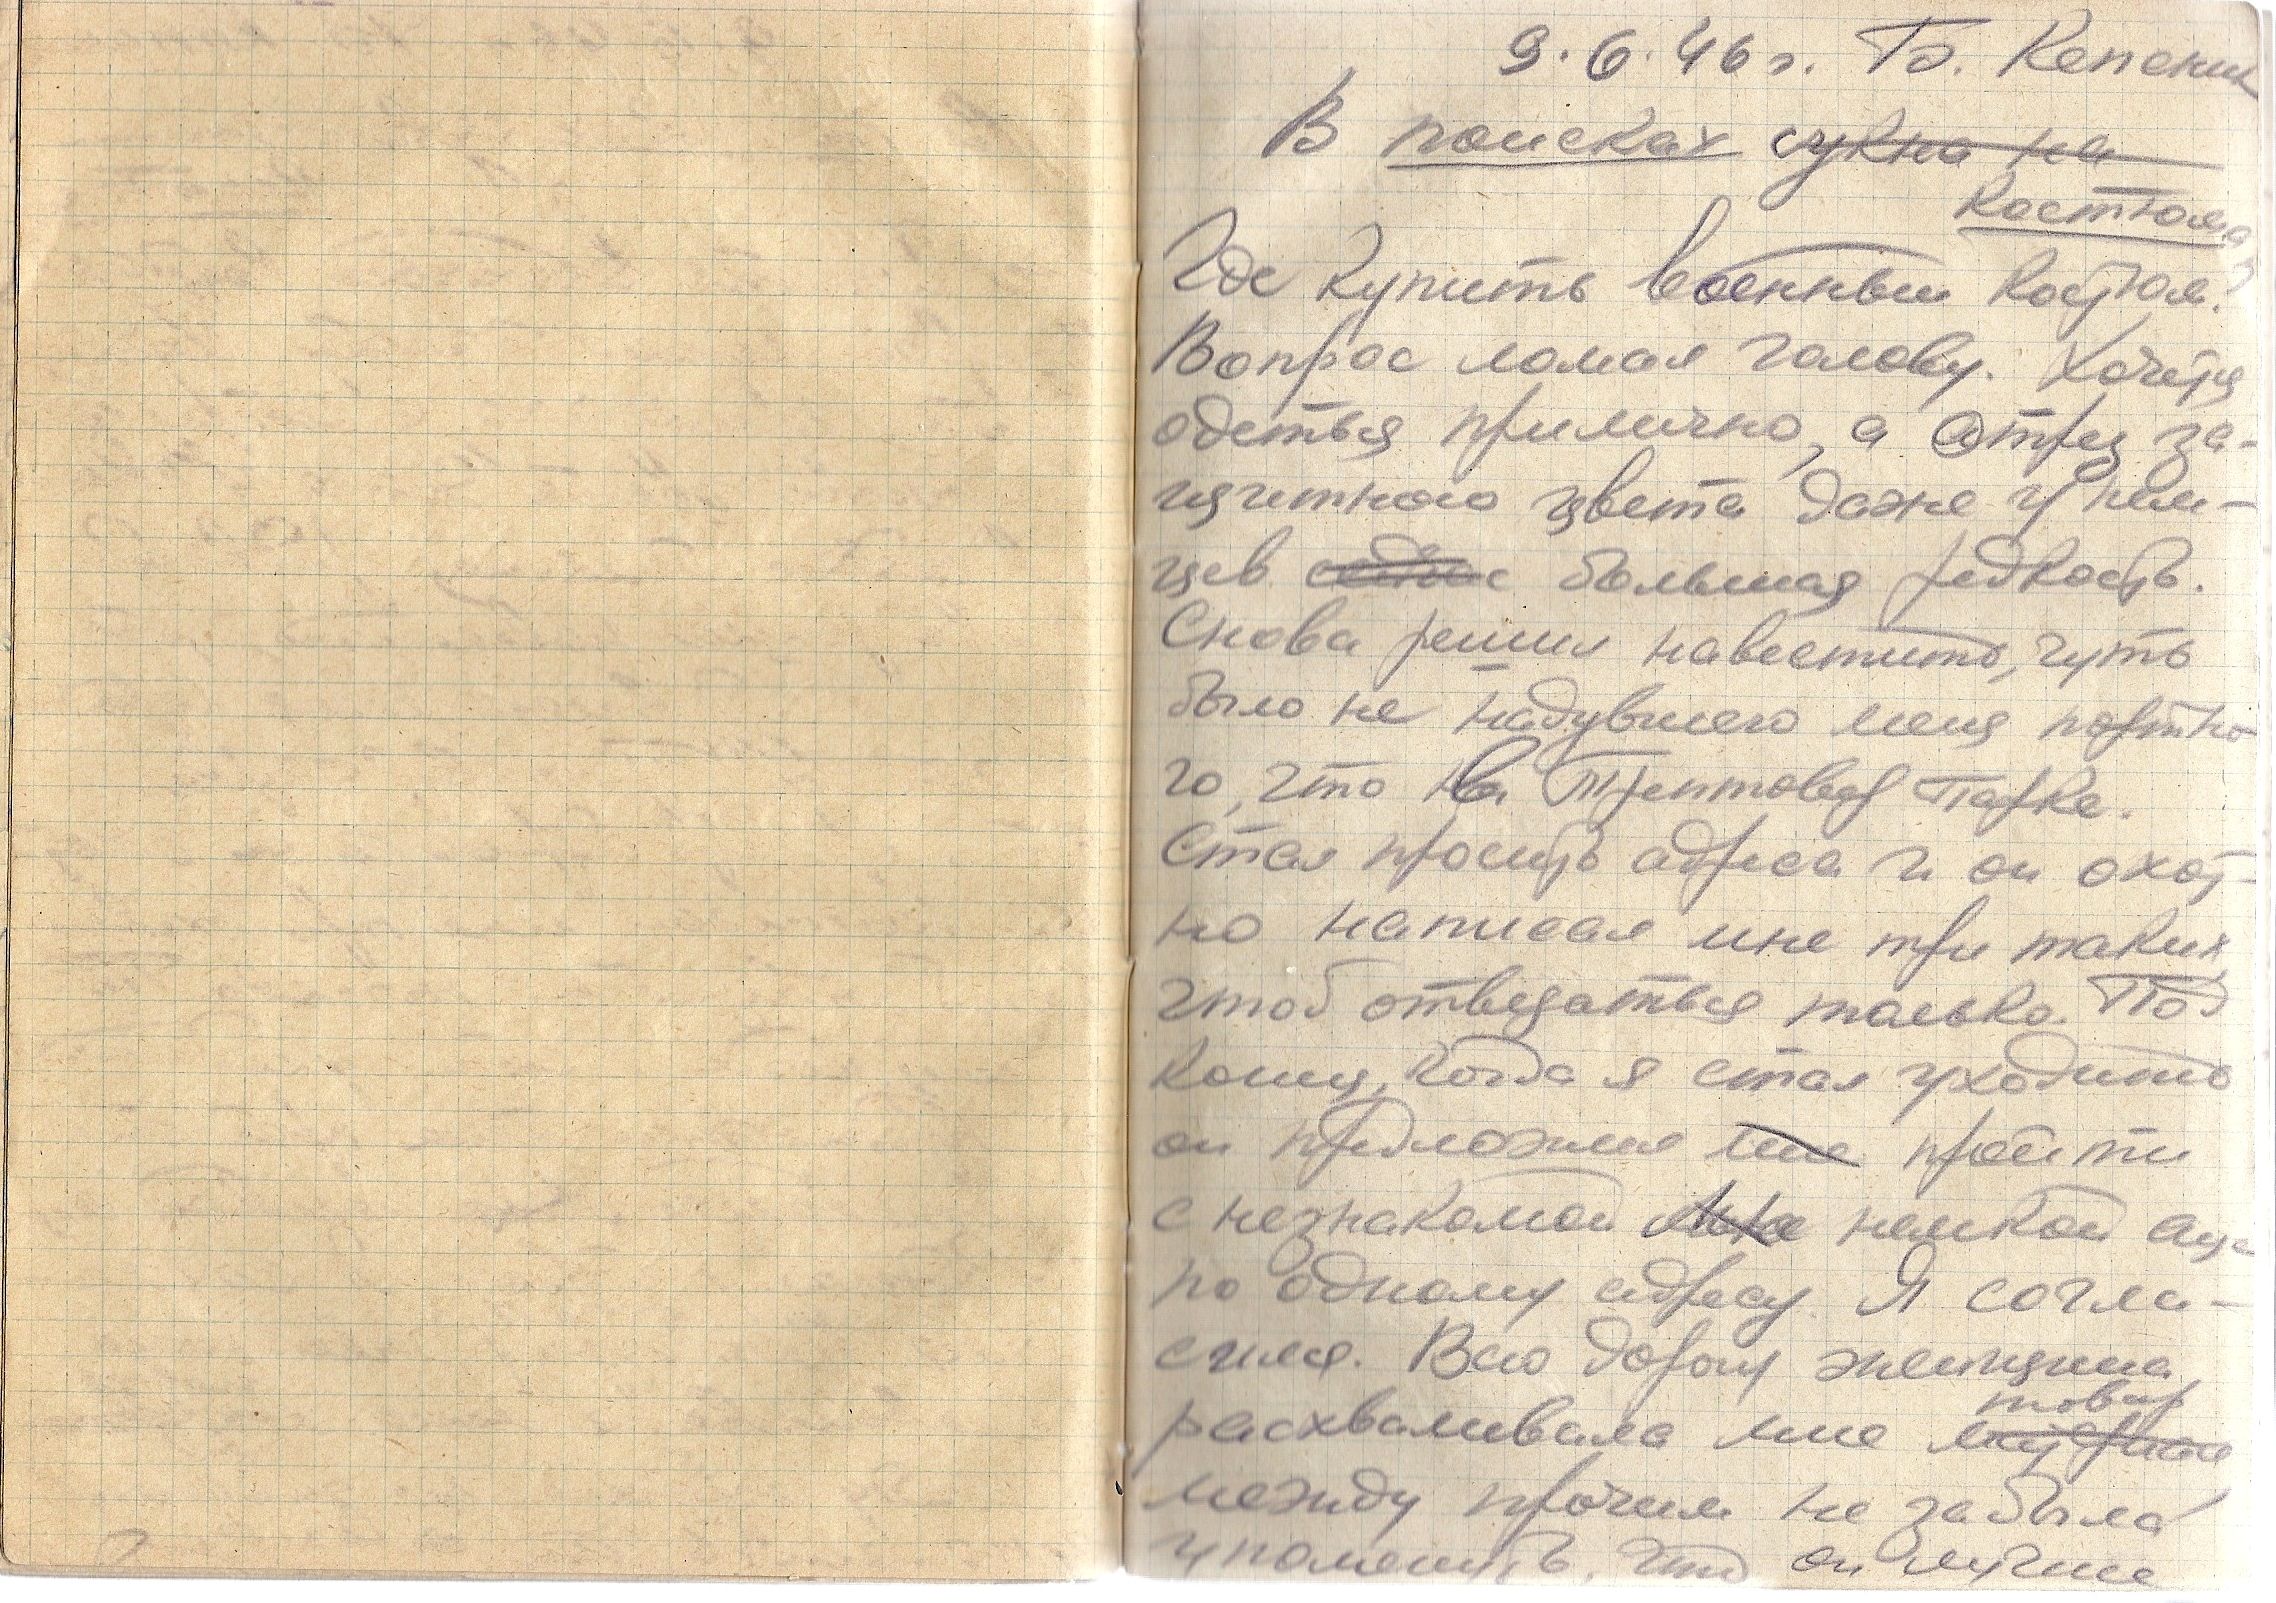 9.6.46 г. Б. Кепеник
В поисках сукна на
костюма
Где купить военный костюм?
Вопрос ломал голову. Хочется
одеться прилично, а отрез за-
щитного цвета даже у нем-
цев большая редкость.
Снова решил навестить, чуть
было не надувшего меня портно-
го, что на Трептовер Парке.
Стал просить адреса и он охот-
но написал мне три таких,
чтоб отвязаться только. Под
конец, когда я стал уходить
он предложил мне пройти
с незнакомой мне немкой еще
по одному адресу. Я согла-
сился. Всю дорогу женщина
товар
расхваливала мне материал
между прочим не забыла
упомянуть, что он лучше